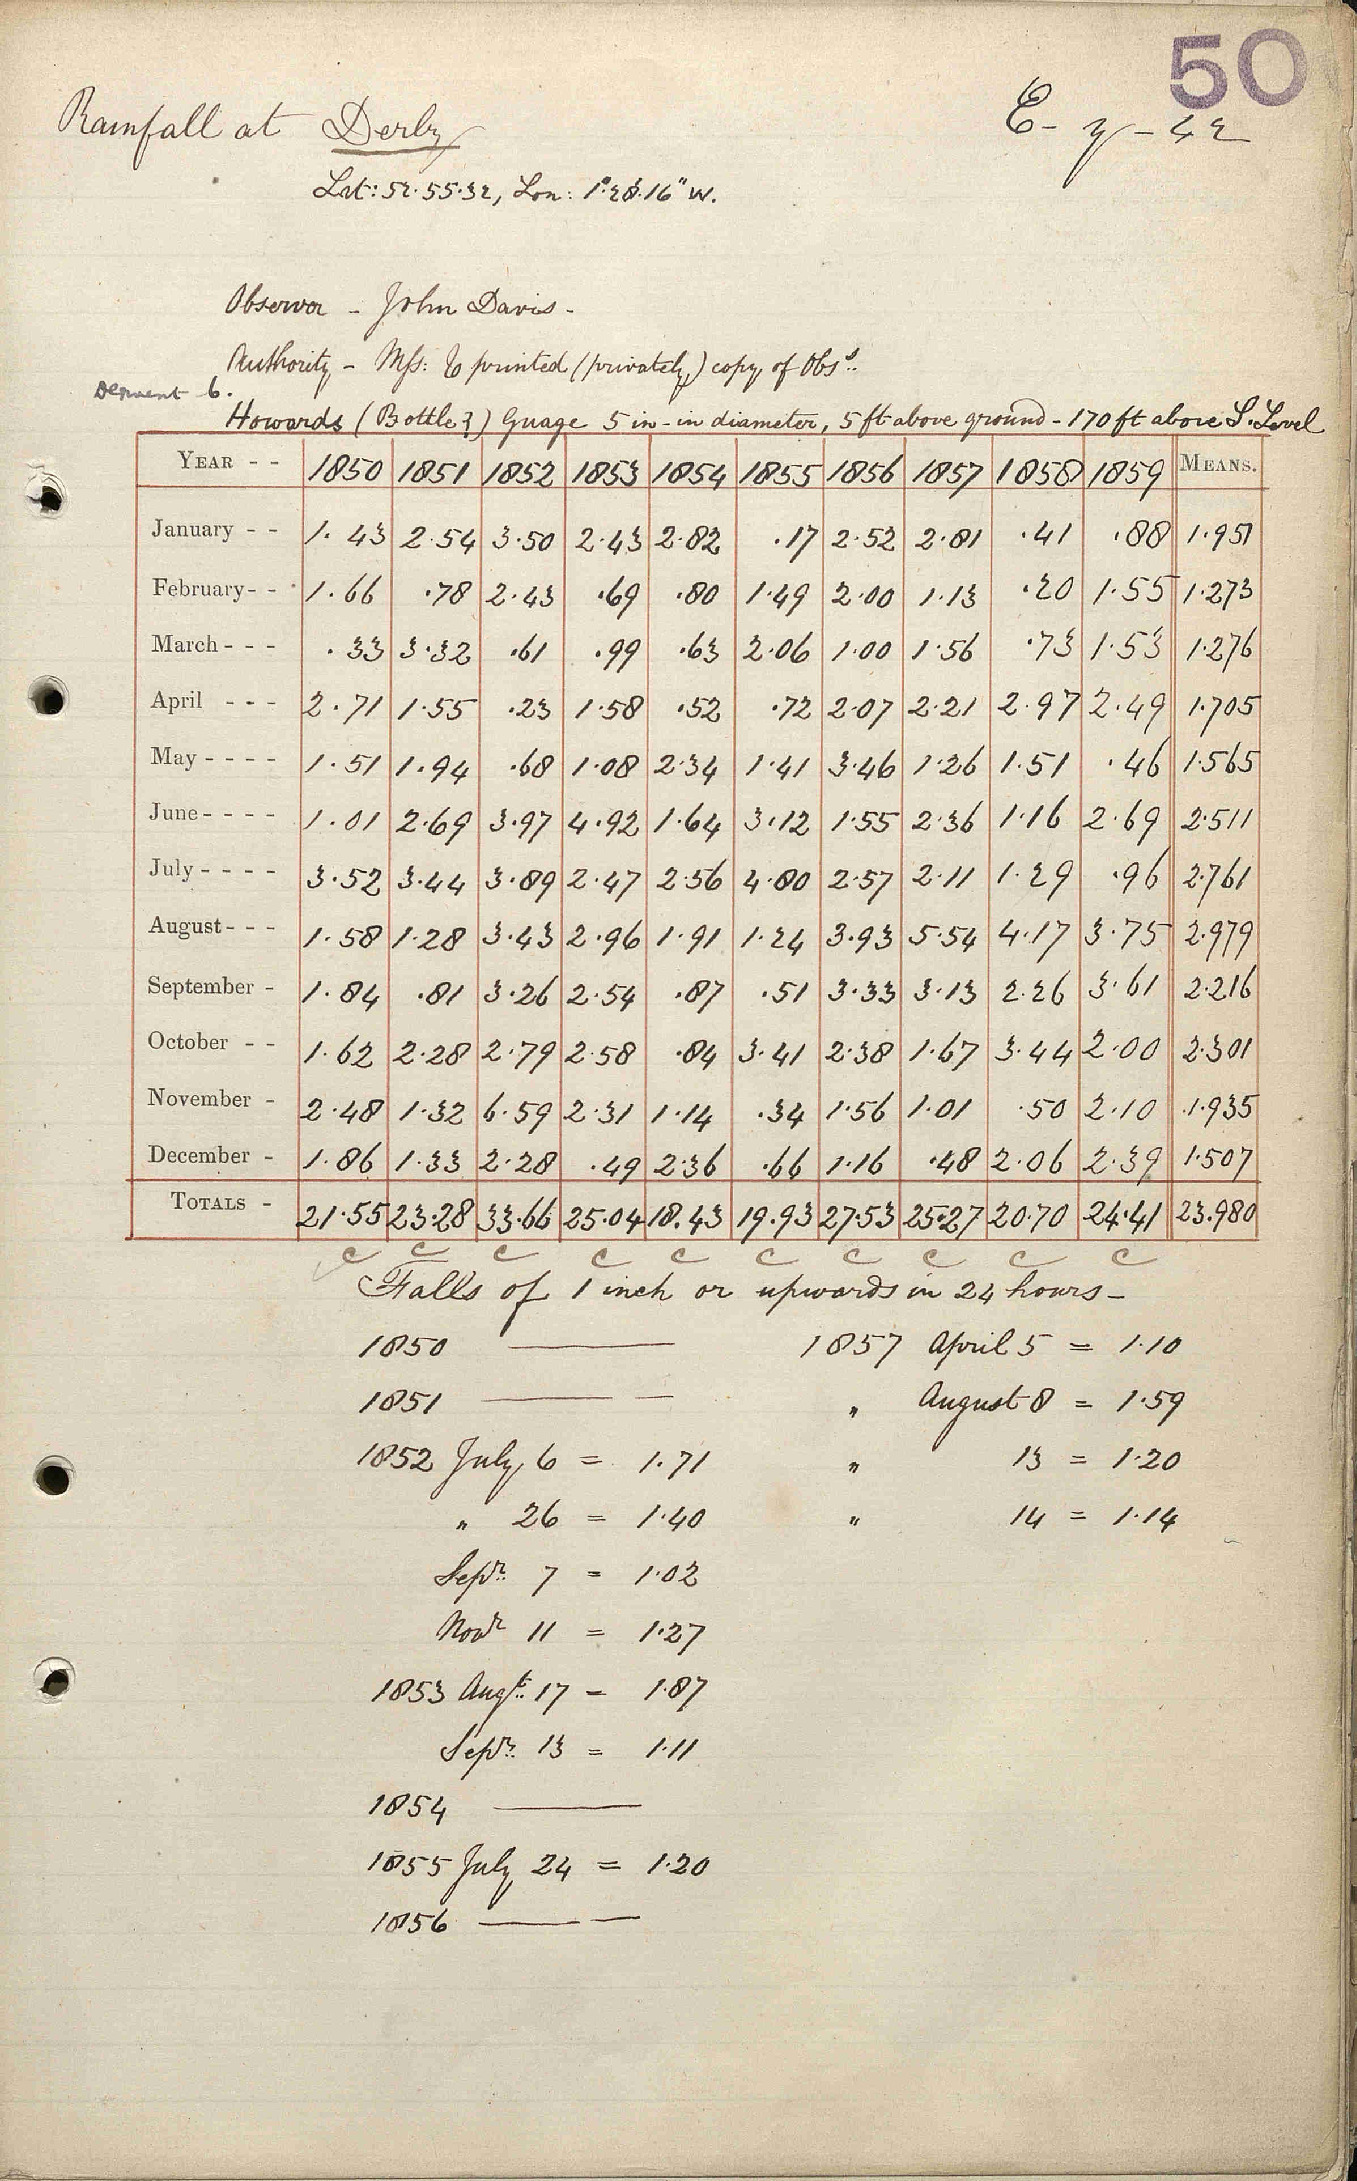 50
Rainfall at Derby
E - y - 42
Lat: 52.55.32, Lon: 1°.28'.16" W.
Observer - John Davis -
Authority - Mss: & printed (privately) copy of Obs.s
Derwent 6.
Howards (Bottle?) Guage 5 in - in diameter, 5 ft above ground - 170 ft above S. Level
YEAR - - 1850 1851 1852 1853 1854 1855 1856 1857 1858 1859 MEANS.
January - - 1.43 2.54 3.50 2.43 2.82 .17 2.52 2.81 .41 .88 1.951
February - - 1.66 .78 2.43 .69 .80 1.49 2.00 1.13 .20 1.55 1.273
March - - - .33 3.32 .61 .99 .63 2.06 1.00 1.56 .73 1.53 1.276
April - - - 2.71 1.55 .23 1.58 .52 .72 2.07 2.21 2.97 2.49 1.705
May - - - - 1.51 1.94 .68 1.08 2.34 1.41 3.46 1.26 1.51 .46 1.565
June - - - - 1.01 2.69 3.97 4.92 1.64 3.12 1.55 2.36 1.16 2.69 2.511
July - - - - 3.52 3.44 3.89 2.47 2.56 4.80 2.57 2.11 1.29 .96 2.761
August - - - 1.58 1.28 3.43 2.96 1.91 1.24 3.93 5.54 4.17 3.75 2.979
September - 1.84 .81 3.26 2.54 .87 .51 3.33 3.13 2.26 3.61 2.216
October - - 1.62 2.28 2.79 2.58 .84 3.41 2.38 1.67 3.44 2.00 2.301
November - 2.48 1.32 6.59 2.31 1.14 .34 1.56 1.01 .50 2.10 1.935
December - 1.86 1.33 2.28 .49 2.36 .66 1.16 .48 2.06 2.39 1.507
TOTALS - 21.55 23.28 33.66 25.04 18.43 19.93 27.53 25.27 20.70 24.41 23.980
c c c c c c c c c c
Falls of 1 inch or upwards in 24 hours -
1850 ——— 1857 April 5 = 1.10
1851 ——— " August 8 = 1.59
1852 July 6 = 1.71 " 13 = 1.20
" 26 = 1.40 " 14 = 1.14
Sepr. 7 = 1.02
Novr 11 = 1.27
1853 Augt. 17 = 1.87
Sepr. 13 = 1.11
1854 ———
1855 July 24 = 1.20
1856 ———